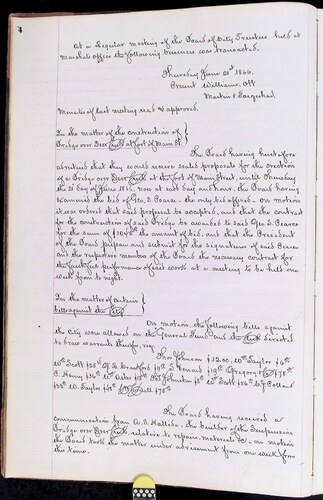 At a Regular meeting of the Board of City Trustees held at
Marshals office the following business was transacted.
Thursday June 21st 1866.
Present Williams, Ott
Martin & Farquhar.
Minutes of last meeting read & approved.
In the matter of the construction of
Bridge over Deer Creek at foot of Main St.
The Board having heretofore
advertised that they would receive sealed proposals for the erection
of a Bridge over Deer Creek at the foot of Main Street, until Thursday
the 21 day of June 1866, now at said day and hour, the Board having
examined the bid of Geo. D. Pearce, the only bid offered. On motion
it was ordered that said proposal be accepted, and that the contract
for the construction of said Bridge be awarded to said Geo. D. Pearce
for the sum of the amount of bid, and that the President
of the Board prepare and submit for the signatures of said Pearce
and the respective members of the Board the necessary contract for
the faithful performance of said work at a meeting to be held one
week from to night.
In the matter of certain
bills against the City
On motion, the following bills against
the City were allowed on the General Fund and the Clerk directed
to draw warrants therefor, viz
Thos Johnson $12.00, Wm Taylor
Wm Scott Crawford Gregory
P. Henry Johnston Wm Scott Pollard
Wm Taylor Hill
The Board having received a
communication from A. S. Hallidie, the builder of the Suspension
Bridge over Deer Creek, relative to repairs, materials &c, on motion
the Board took the matter under advisement from one week from
this time.